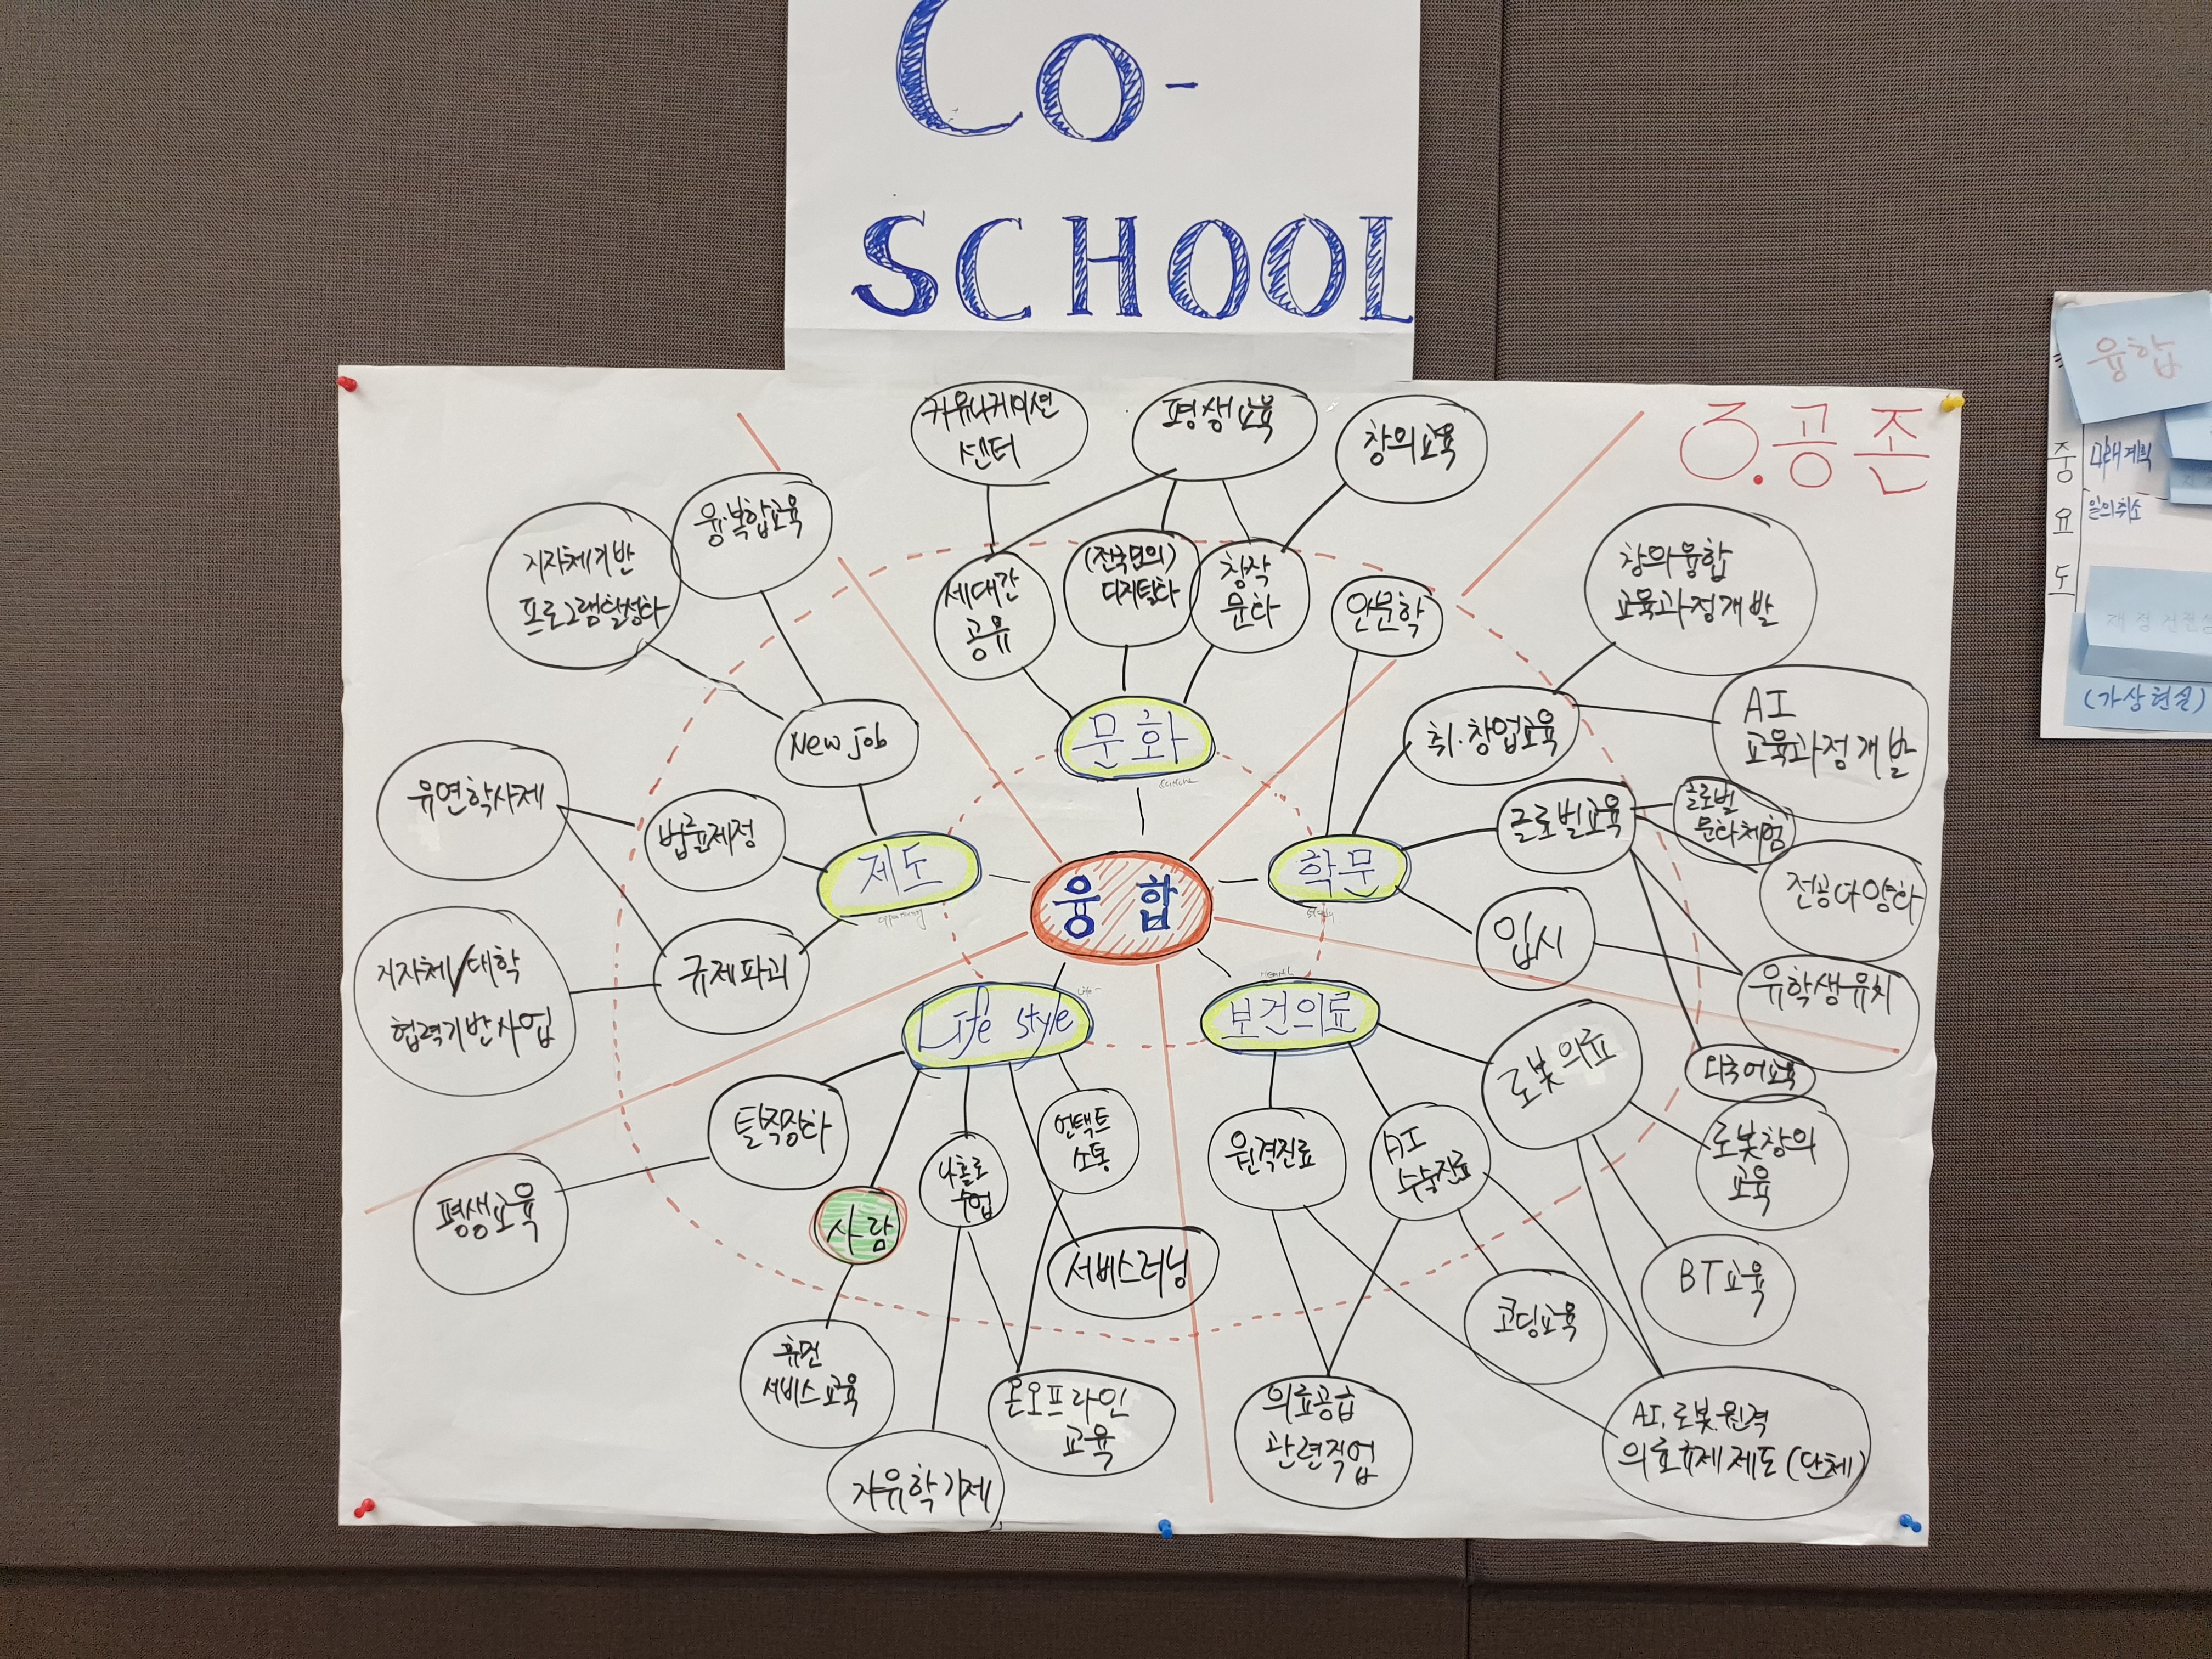 CO-
SCHOOL
3.공존
커뮤니케이션
센터
평생교육
창의교육
융·복합교육
지자체기반
프로그램활성화
세대간
공유
(전국민의)
디지털화
창작
문화
인문학
창의융합
교육과정개발
AI
교육과정개발
New job
문화
취·창업교육
유연학사제
법률제정
제도
융합
학문
글로벌교육
글로벌
문화체험
전공다양화
지자체/대학
협력기반사업
규제파괴
입시
유학생유치
Life style
보건의료
로봇의료
외국어교육
탈직장화
사람
나홀로
수업
언택트
소통
원격진료
AI
수술진료
로봇창의
교육
평생교육
서비스러닝
BT교육
코딩교육
휴먼
서비스교육
온오프라인
교육
자유학기제
의료공급
관련직업
AI.로봇.원격
의료규제 제도(단체)
융합
중
요
도
미래계획
일의취소
(가상현실)